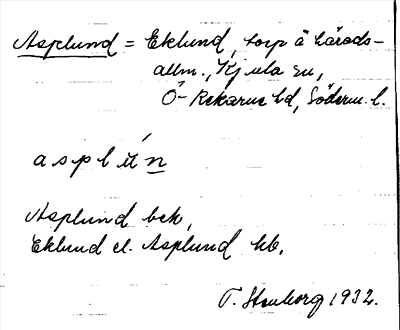 Asplund = Eklund, torp å härads-
allm., Kjula sn,
Ö-Rekarne hd, Söderm. l.
asplún
Asplund bek.
Eklund el. Asplund kb.
T. Stenborg 1932.